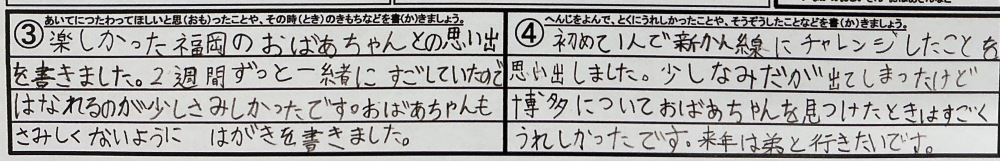 ③あいてにつたわってほしいと思(おも)ったことや、その時(とき)のきもちなどを書(か)きましょう。
楽しかった福岡のおばあちゃんとの思い出
を書きました。2週間ずっと一緒にすごしていたので
はなれるのが少しさみしかったです。おばあちゃんも
さみしくないように はがきを書きました。
④へんじをよんで、とくにうれしかったことや、そうぞうしたことなどを書(か)きましょう。
初めて1人で新かん線にチャレンジしたことを
思い出しました。少しなみだが出てしまったけど
博多についておばあちゃんを見つけたときはすごく
うれしかったです。来年は弟と行きたいです。